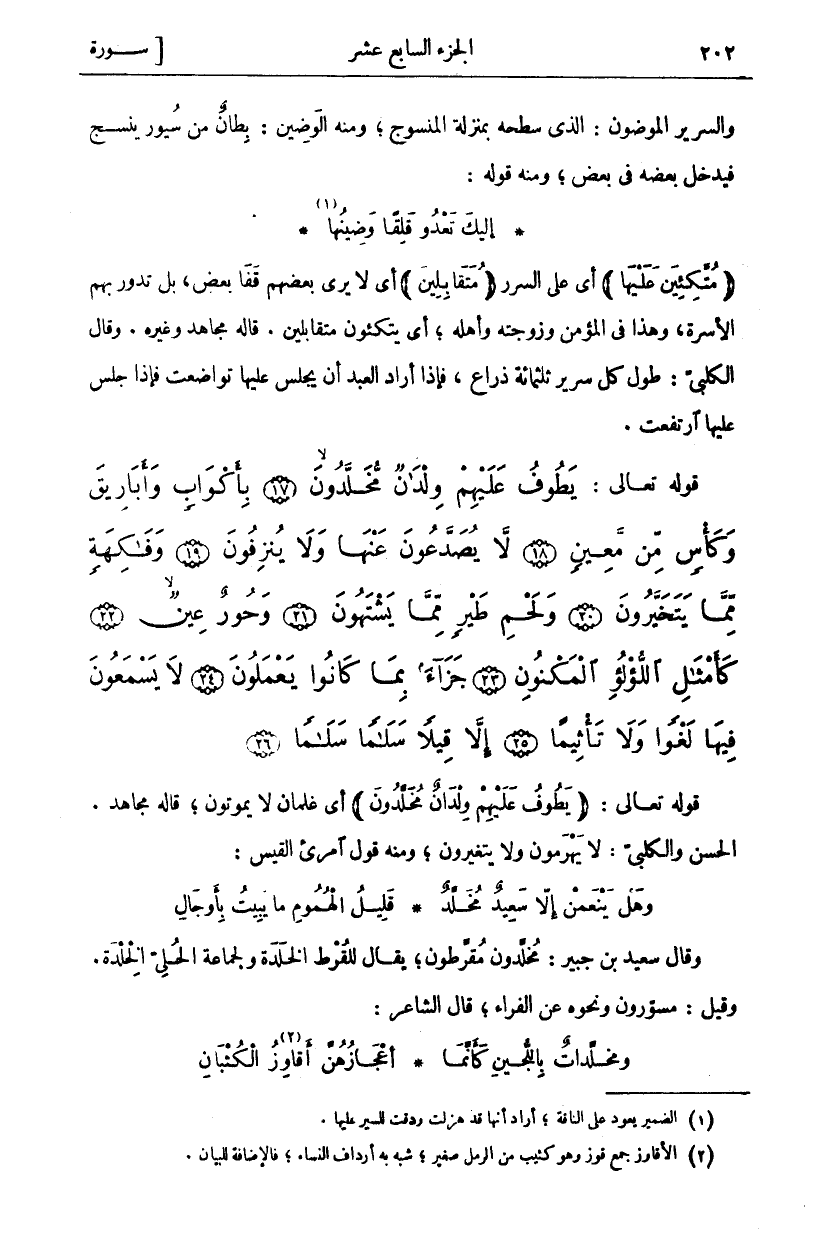 ٢٠٢ الجزء السابع عشر [ سورة
والسرير الموضون : الذى سطحه بمنزلة المنسوج ؛ ومنه الوَضِين : بِطانٌ من سُيور ينسج
فيدخل بعضه فى بعض ؛ ومنه قوله :
* إليكَ تَعْدُو قَلِقًا وَضِينُها (١) *
﴿ مُتَّكِئِينَ عَلَيْهَا ﴾ أى على السرر ﴿ مُتَقَابِلِينَ ﴾ أى لا يرى بعضهم قَفَا بعض، بل تدور بهم
الأسرة، وهذا فى المؤمن وزوجته وأهله ؛ أى يتكئون متقابلين . قاله مجاهد وغيره . وقال
الكلبىّ : طول كل سرير ثلثمائة ذراع ، فإذا أراد العبد أن يجلس عليها تواضعت فإذا جلس
عليها آرتفعت .
قوله تعالى : يَطُوفُ عَلَيْهِمْ وِلْدَٰنٌ مُّخَلَّدُونَ ۙ ١٧ بِأَكْوَابٍ وَأَبَارِيقَ
وَكَأْسٍ مِّن مَّعِينٍ ١٨ لَّا يُصَدَّعُونَ عَنْهَا وَلَا يُنزِفُونَ ١٩ وَفَـٰكِهَةٍ
مِّمَّا يَتَخَيَّرُونَ ٢٠ وَلَحْمِ طَيْرٍ مِّمَّا يَشْتَهُونَ ٢١ وَحُورٌ عِينٌ ۙ ٢٢
كَأَمْثَـٰلِ ٱللُّؤْلُؤِ ٱلْمَكْنُونِ ٢٣ جَزَآءً بِمَا كَانُوا يَعْمَلُونَ ٢٤ لَا يَسْمَعُونَ
فِيهَا لَغْوًا وَلَا تَأْثِيمًا ٢٥ إِلَّا قِيلًا سَلَـٰمًا سَلَـٰمًا ٢٦
قوله تعالى : ﴿ يَطُوفُ عَلَيْهِمْ وِلْدَانٌ مُخَلَّدُونَ ﴾ أى غلمان لا يموتون ؛ قاله مجاهد .
الحسن والكلبىّ : لا يَهْرَمون ولا يتغيرون ؛ ومنه قول آمرئ القيس :
وهَلْ يَنْعَمَنْ إلّا سَعِيدٌ مُخَلَّدٌ * قَلِيلُ الْهُمُومِ ما يَبِيتُ بِأَوجَالِ
وقال سعيد بن جبير : مُخَلَّدون مُقَرَّطون؛ يقال للقُرْط الخَلَدَة ولجماعة الحُلِىّ الخِلْدَة.
وقيل : مسوّرون ونحوه عن الفراء ؛ قال الشاعر :
ومخلَّداتٌ بِاللُّجَينِ كَأَنَّمَا * أعْجَازُهُنَّ أَقَاوِزُ الْكُثْبَانِ (٢)
(١) الضمير يعود على الناقة ؛ أراد أنها قد هزلت ودقت للسير عليها .
(٢) الأقاوز جمع قوز وهو كثيب من الرمل صغير ؛ شبه به أرداف النساء ؛ فالإضافة للبيان .